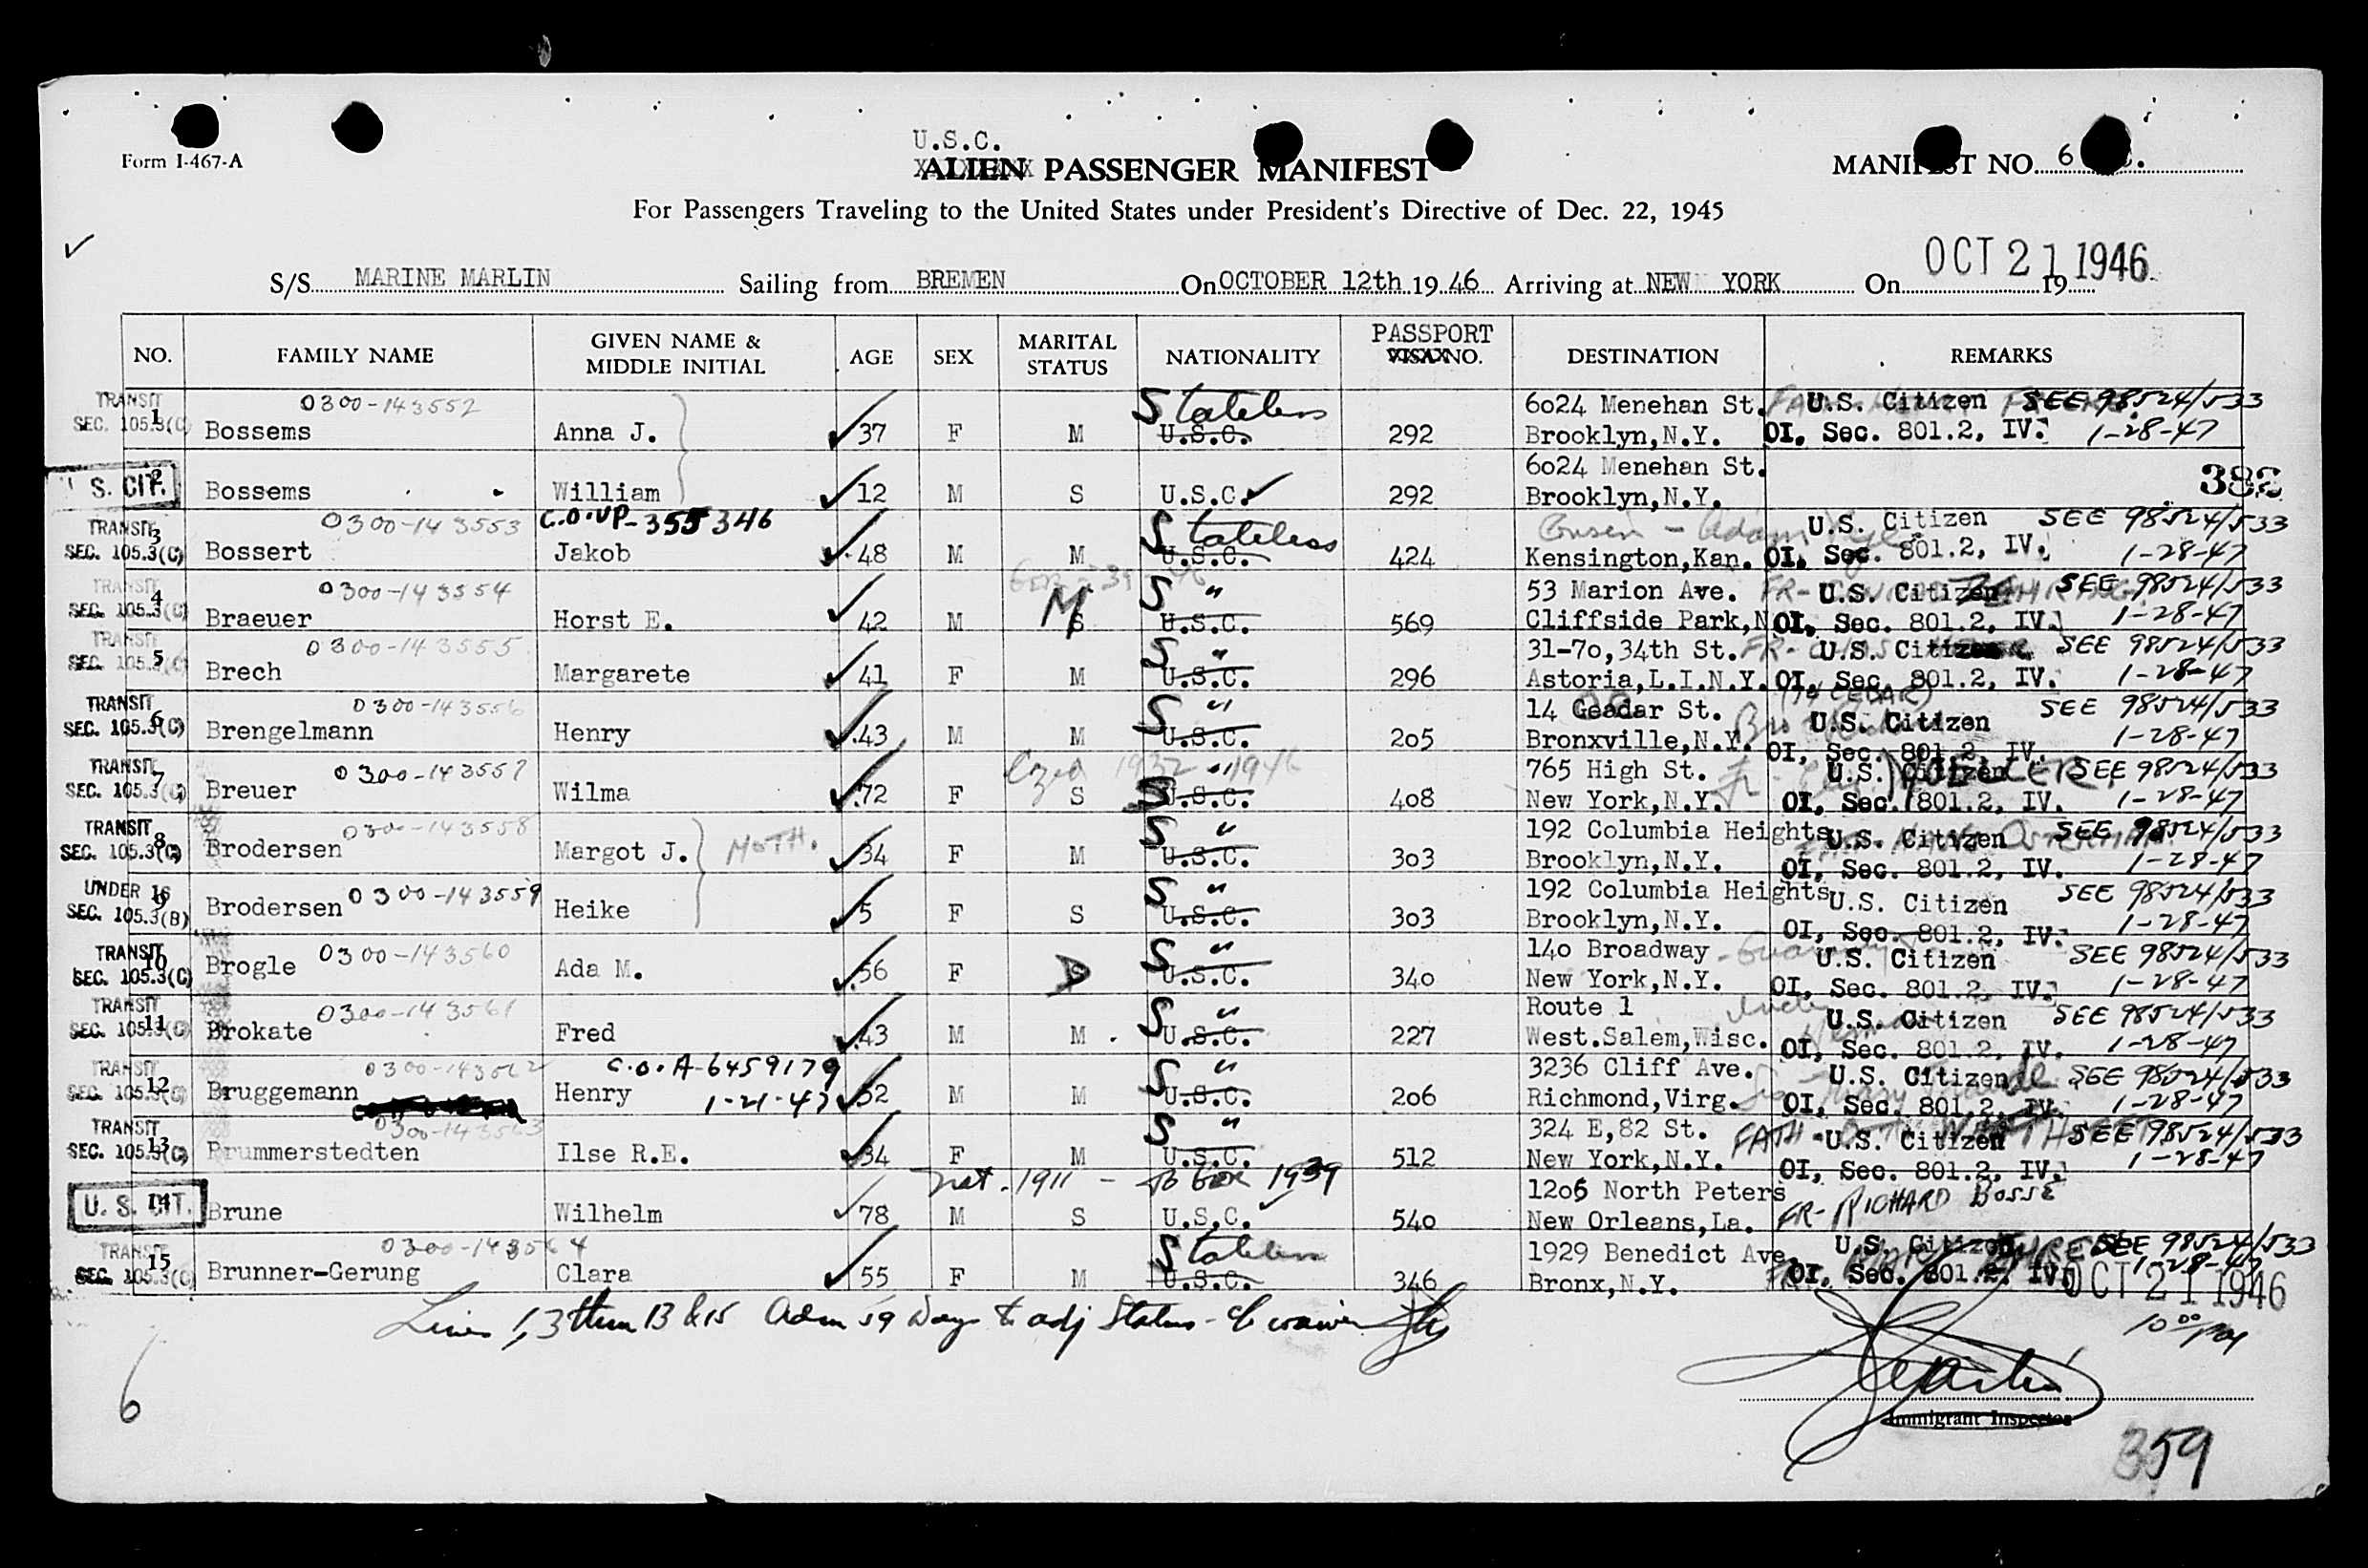 Form I-467-A
U.S.C.
ALIEN PASSENGER MANIFEST
MANIFEST NO. 6
For Passengers Traveling to the United States under President's Directive of Dec. 22, 1945
S/S MARINE MARLIN Sailing from BREMEN On OCTOBER 12th 19 46 Arriving at NEW YORK On OCT 21 1946 19
NO. FAMILY NAME GIVEN NAME & MIDDLE INITIAL AGE SEX MARITAL STATUS NATIONALITY PASSPORT NO. DESTINATION REMARKS
TRANSIT 0300-143552 Stateless 6024 Menehan St. U.S. Citizen SEE 98524/533
SEC. 105.3(C) 1 Bossems Anna J. 37 F M U.S.C. 292 Brooklyn,N.Y. OI, Sec. 801.2, IV. 1-28-47
6024 Menehan St.
U.S. CIT. 2 Bossems William 12 M S U.S.C. 292 Brooklyn,N.Y. 382
TRANSIT 0300-143553 C.O.VP-355346 Stateless Cousin - Adam U.S. Citizen SEE 98524/533
SEC. 105.3(C) 3 Bossert Jakob 48 M M U.S.C. 424 Kensington,Kan. OI, Sec. 801.2, IV. 1-28-47
TRANSIT 0300-143554 S " 53 Marion Ave. FR- U.S. Citizen SEE 98524/533
SEC. 105.3(C) 4 Braeuer Horst E. 42 M M S U.S.C. 569 Cliffside Park,N OI, Sec. 801.2, IV. 1-28-47
TRANSIT 0300-143555 S " 31-70,34th St. FR- U.S. Citizen SEE 98524/533
SEC. 105.3(C) 5 Brech Margarete 41 F M U.S.C. 296 Astoria,L.I.N.Y. OI, Sec. 801.2, IV. 1-28-47
TRANSIT 0300-143556 S " 14 Geadar St. (14 CEDAR) U.S. Citizen SEE 98524/533
SEC. 105.3(C) 6 Brengelmann Henry 43 M M U.S.C. 205 Bronxville,N.Y. OI, Sec. 801.2, IV. 1-28-47
TRANSIT 0300-143557 1932 - 1946 " 765 High St. U.S. Citizen SEE 98524/533
SEC. 105.3(C) 7 Breuer Wilma 72 F S S U.S.C. 408 New York,N.Y. OI, Sec. 801.2, IV. 1-28-47
TRANSIT 0300-143558 MOTH. S " 192 Columbia Heights U.S. Citizen SEE 98524/533
SEC. 105.3(C) 8 Brodersen Margot J. 34 F M U.S.C. 303 Brooklyn,N.Y. OI, Sec. 801.2, IV. 1-28-47
UNDER 16 0300-143559 S " 192 Columbia Heights U.S. Citizen SEE 98524/533
SEC. 105.3(B) 9 Brodersen Heike 5 F S U.S.C. 303 Brooklyn,N.Y. OI, Sec. 801.2, IV. 1-28-47
TRANSIT 0300-143560 S " 140 Broadway U.S. Citizen SEE 98524/533
SEC. 105.3(C) 10 Brogle Ada M. 56 F D U.S.C. 340 New York,N.Y. OI, Sec. 801.2, IV. 1-28-47
TRANSIT 0300-143561 S " Route 1 U.S. Citizen SEE 98524/533
SEC. 105.3(C) 11 Brokate Fred 43 M M U.S.C. 227 West.Salem,Wisc. OI, Sec. 801.2, IV. 1-28-47
TRANSIT 0300-143562 C.O.A-6459179 S " 3236 Cliff Ave. U.S. Citizen SEE 98524/533
SEC. 105.3(C) 12 Bruggemann Henry 1-21-47 52 M M U.S.C. 206 Richmond,Virg. OI, Sec. 801.2, IV. 1-28-47
TRANSIT 0300-143563 S " 324 E,82 St. FATH- U.S. Citizen SEE 98524/533
SEC. 105.3(C) 13 Brummerstedten Ilse R.E. 34 F M U.S.C. 512 New York,N.Y. OI, Sec. 801.2, IV. 1-28-47
Nat. 1911 - To Ger 1939 1206 North Peters FR- RICHARD BOSSE
U. S. CIT. 14 Brune Wilhelm 78 M S U.S.C. 540 New Orleans,La.
TRANSIT 0300-143564 Stateless 1929 Benedict Ave. U.S. Citizen SEE 98524/533
SEC. 105.3(C) 15 Brunner-Gerung Clara 55 F M U.S.C. 346 Bronx,N.Y. OI, Sec. 801.2, IV. 1-28-47
OCT 21 1946
Lines 1, 3 thru 13 & 15 Adm 59 Days to adj Status -
10 00 PM
6
Immigrant Inspector
359